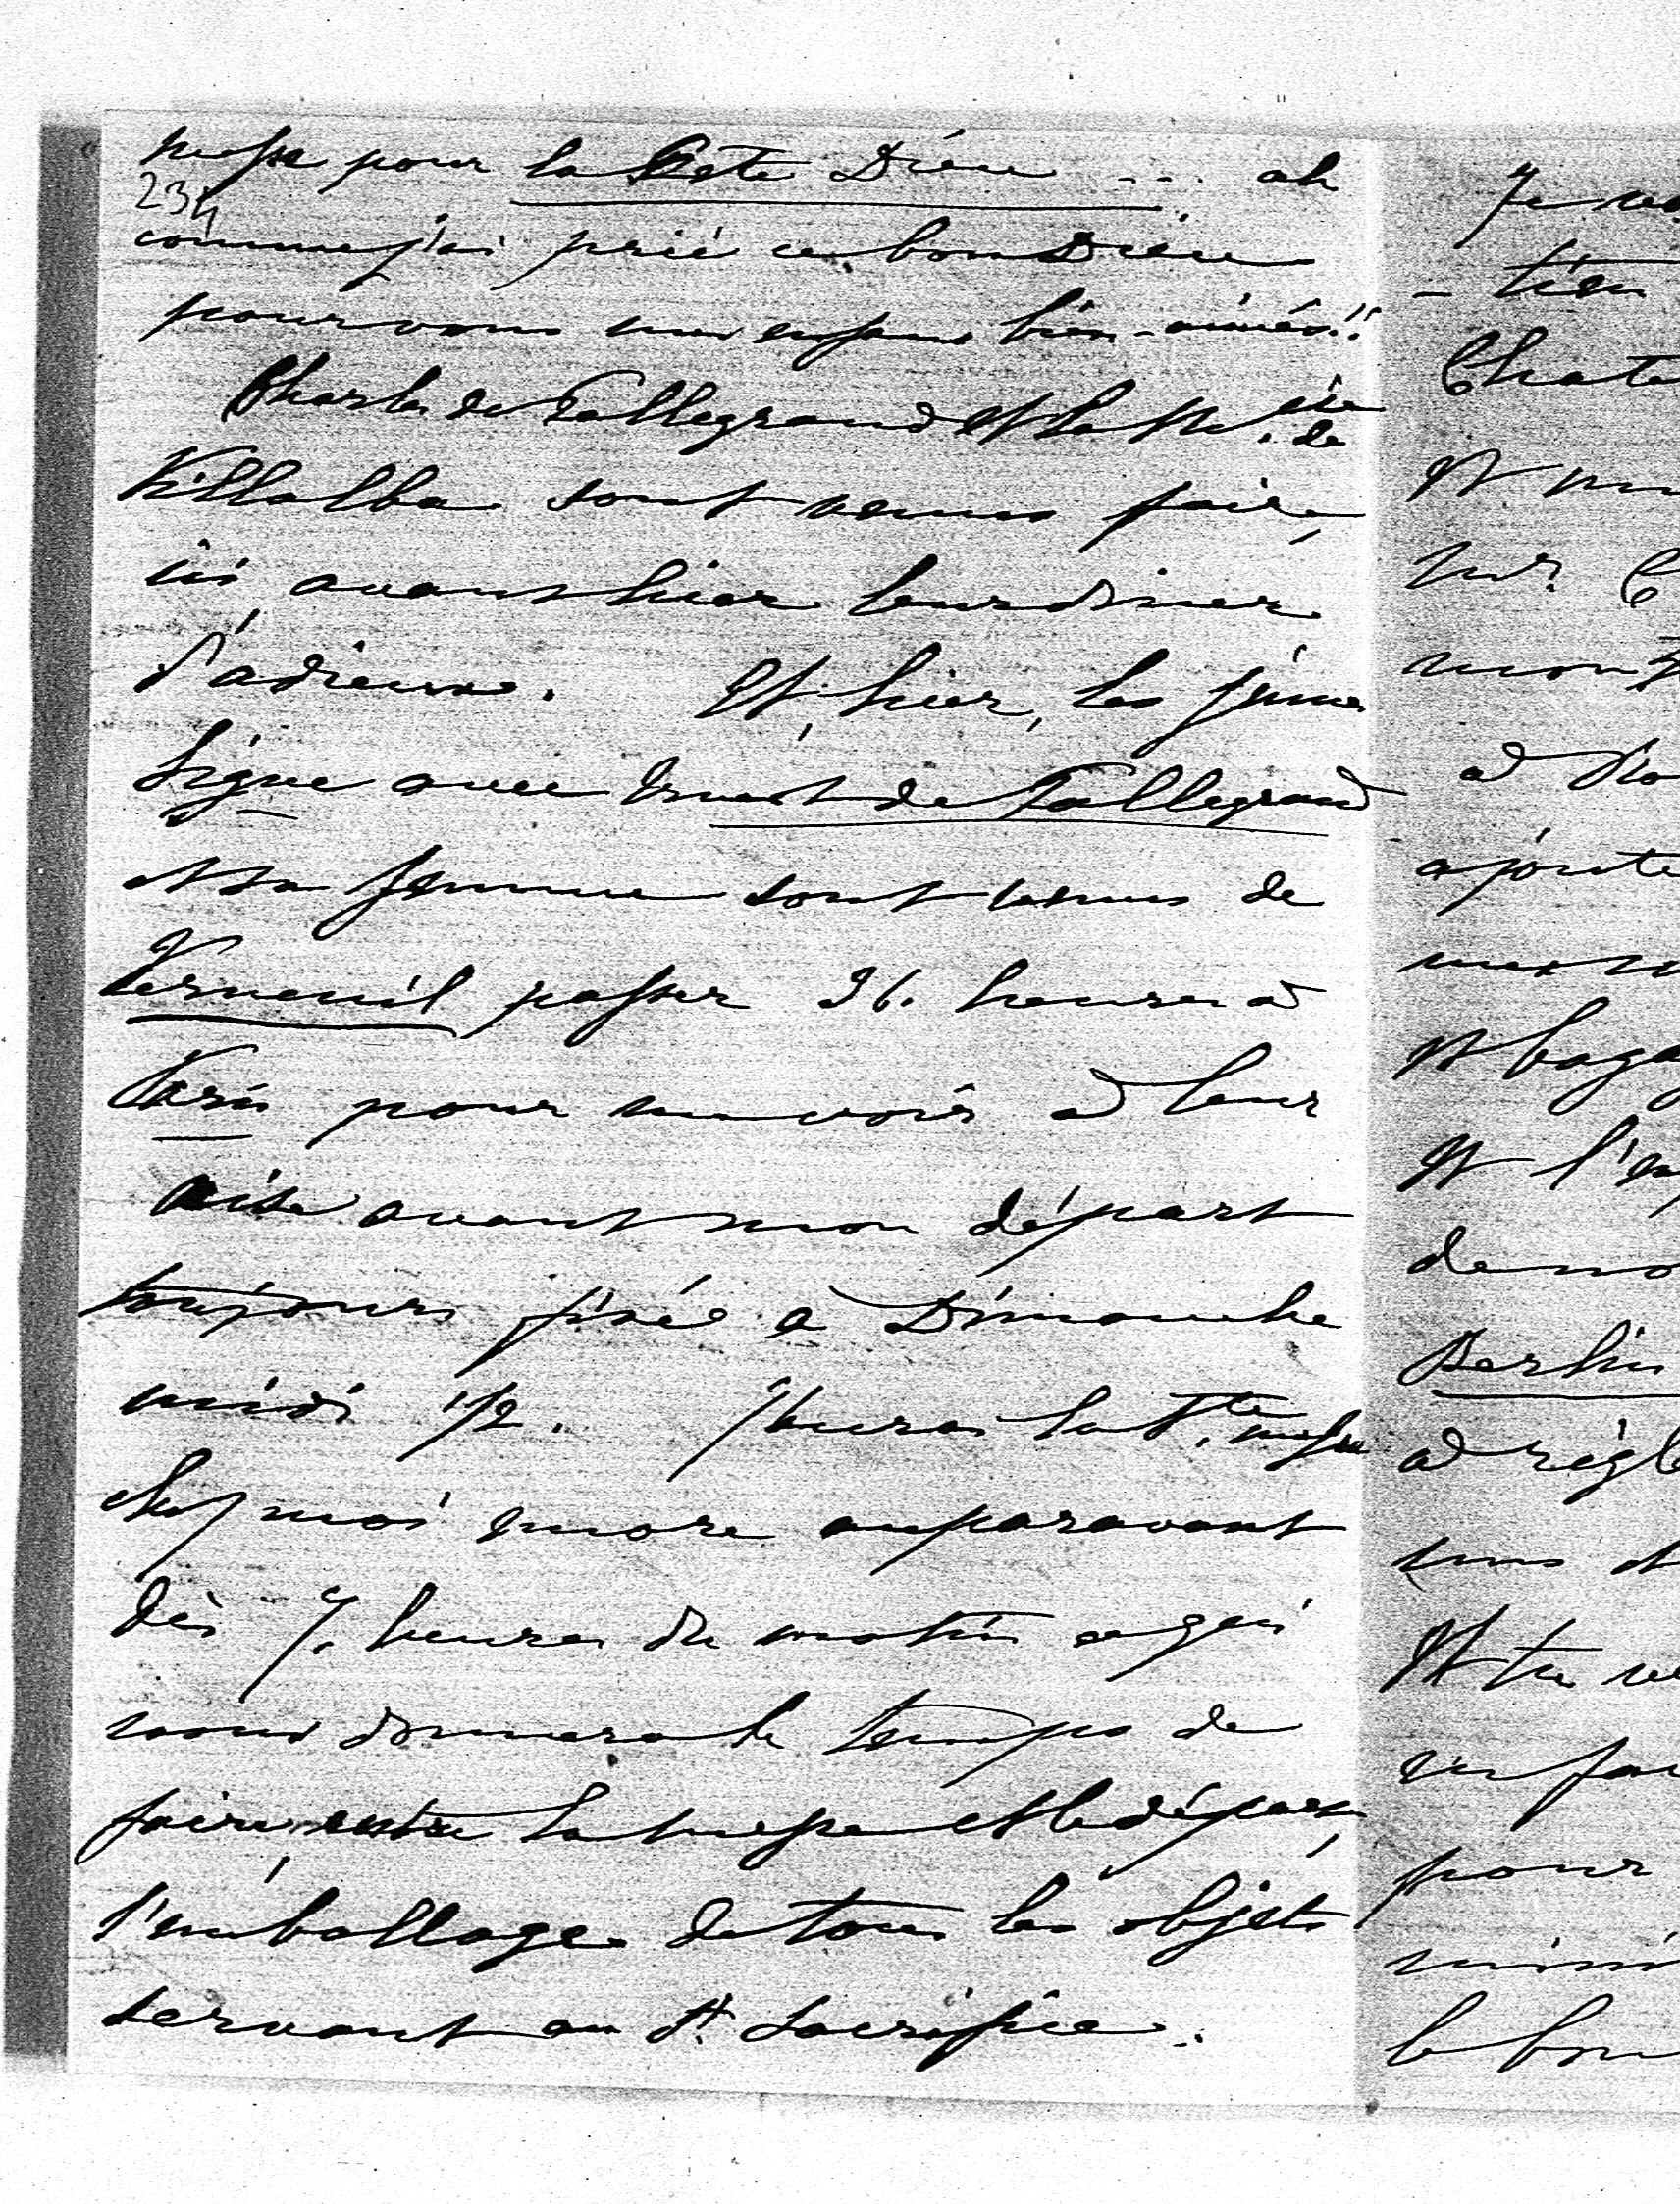 messe pour la Fete Dieu ... ah
234
comme j'ai prié ce bon Dieu
pour vous mes enfans bien-aimés!!
Charles de Tallegrand et la
de
Villalba sont venus faire
ici avant hier leur diner
d'adieux. Et, hier, les jeunes
Ligne avec de Tallegrand
et sa femme sont venus de
Verneuil passer 36. heures à
Paris pour me voir à leur
aise avant mon départ
toujours fixé a Dimanche
midi 1/2. J'aurai la Ste messe
chez moi encore auparavant
dès 7. heures du matin ce qui
nous donnera le temps de
faire entre la messe et le départ
l'emballage de tous les objets
servant au St Sacrifice.
Je
Chate
Et
Mr
mon
à
ajoute
Et l'
Berlin
à règl
Et tu
pour
le bon